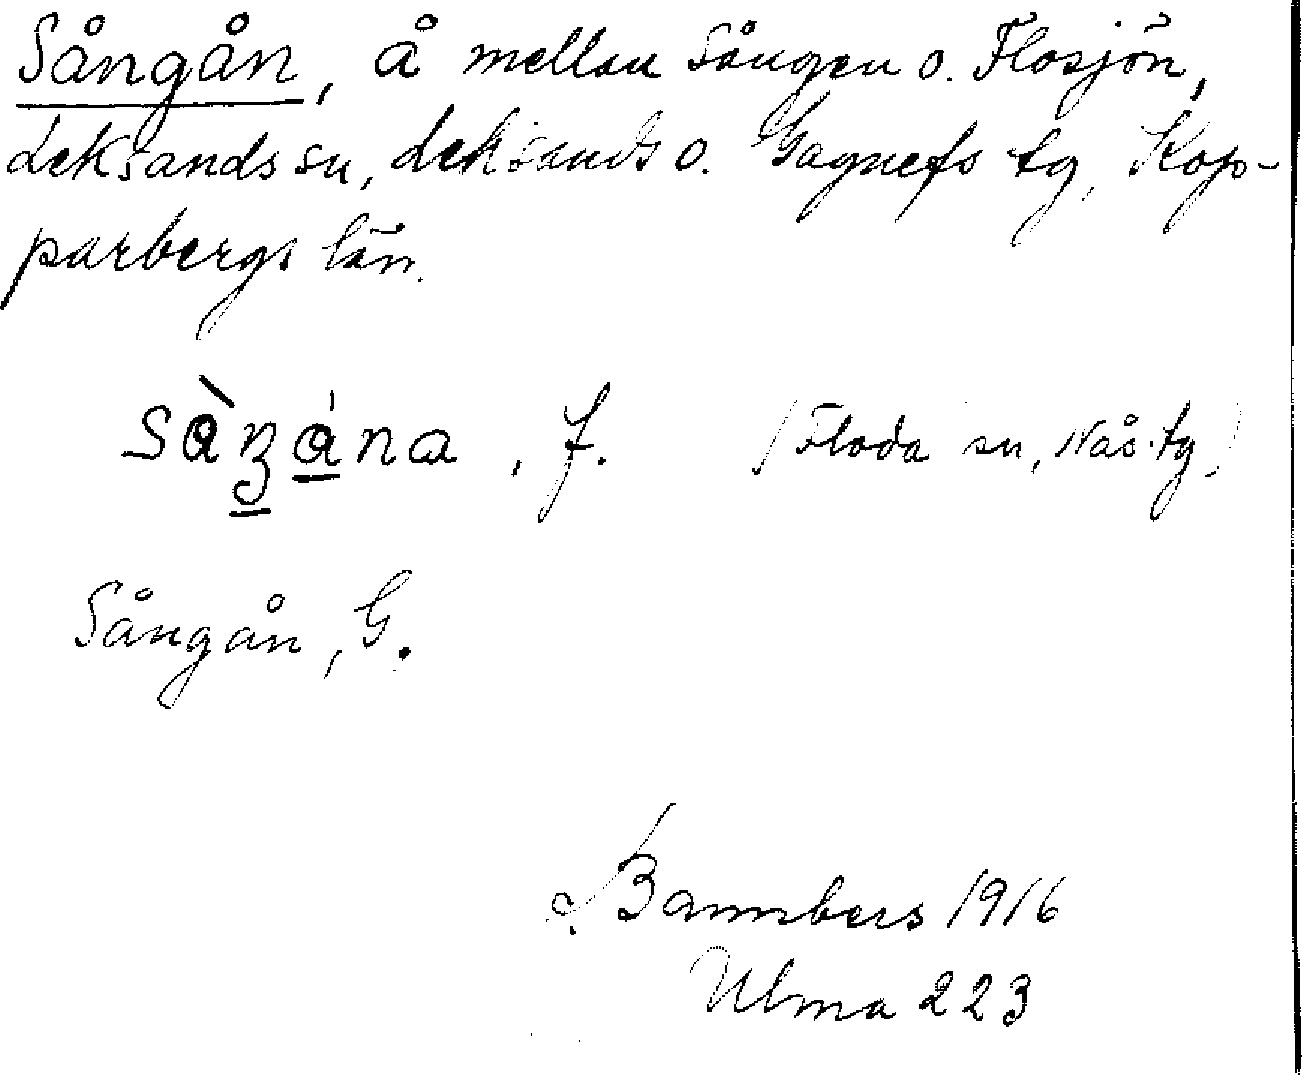 Sångån, å mellan Sången o. Flosjön,
Leksands sn, Leksands o. Gagnefs tg, Kop-
parbergs län.
sàŋána, f. (Floda sn, Nås tg)
Sångån, G.
Bannbers 1916
Ulma 223